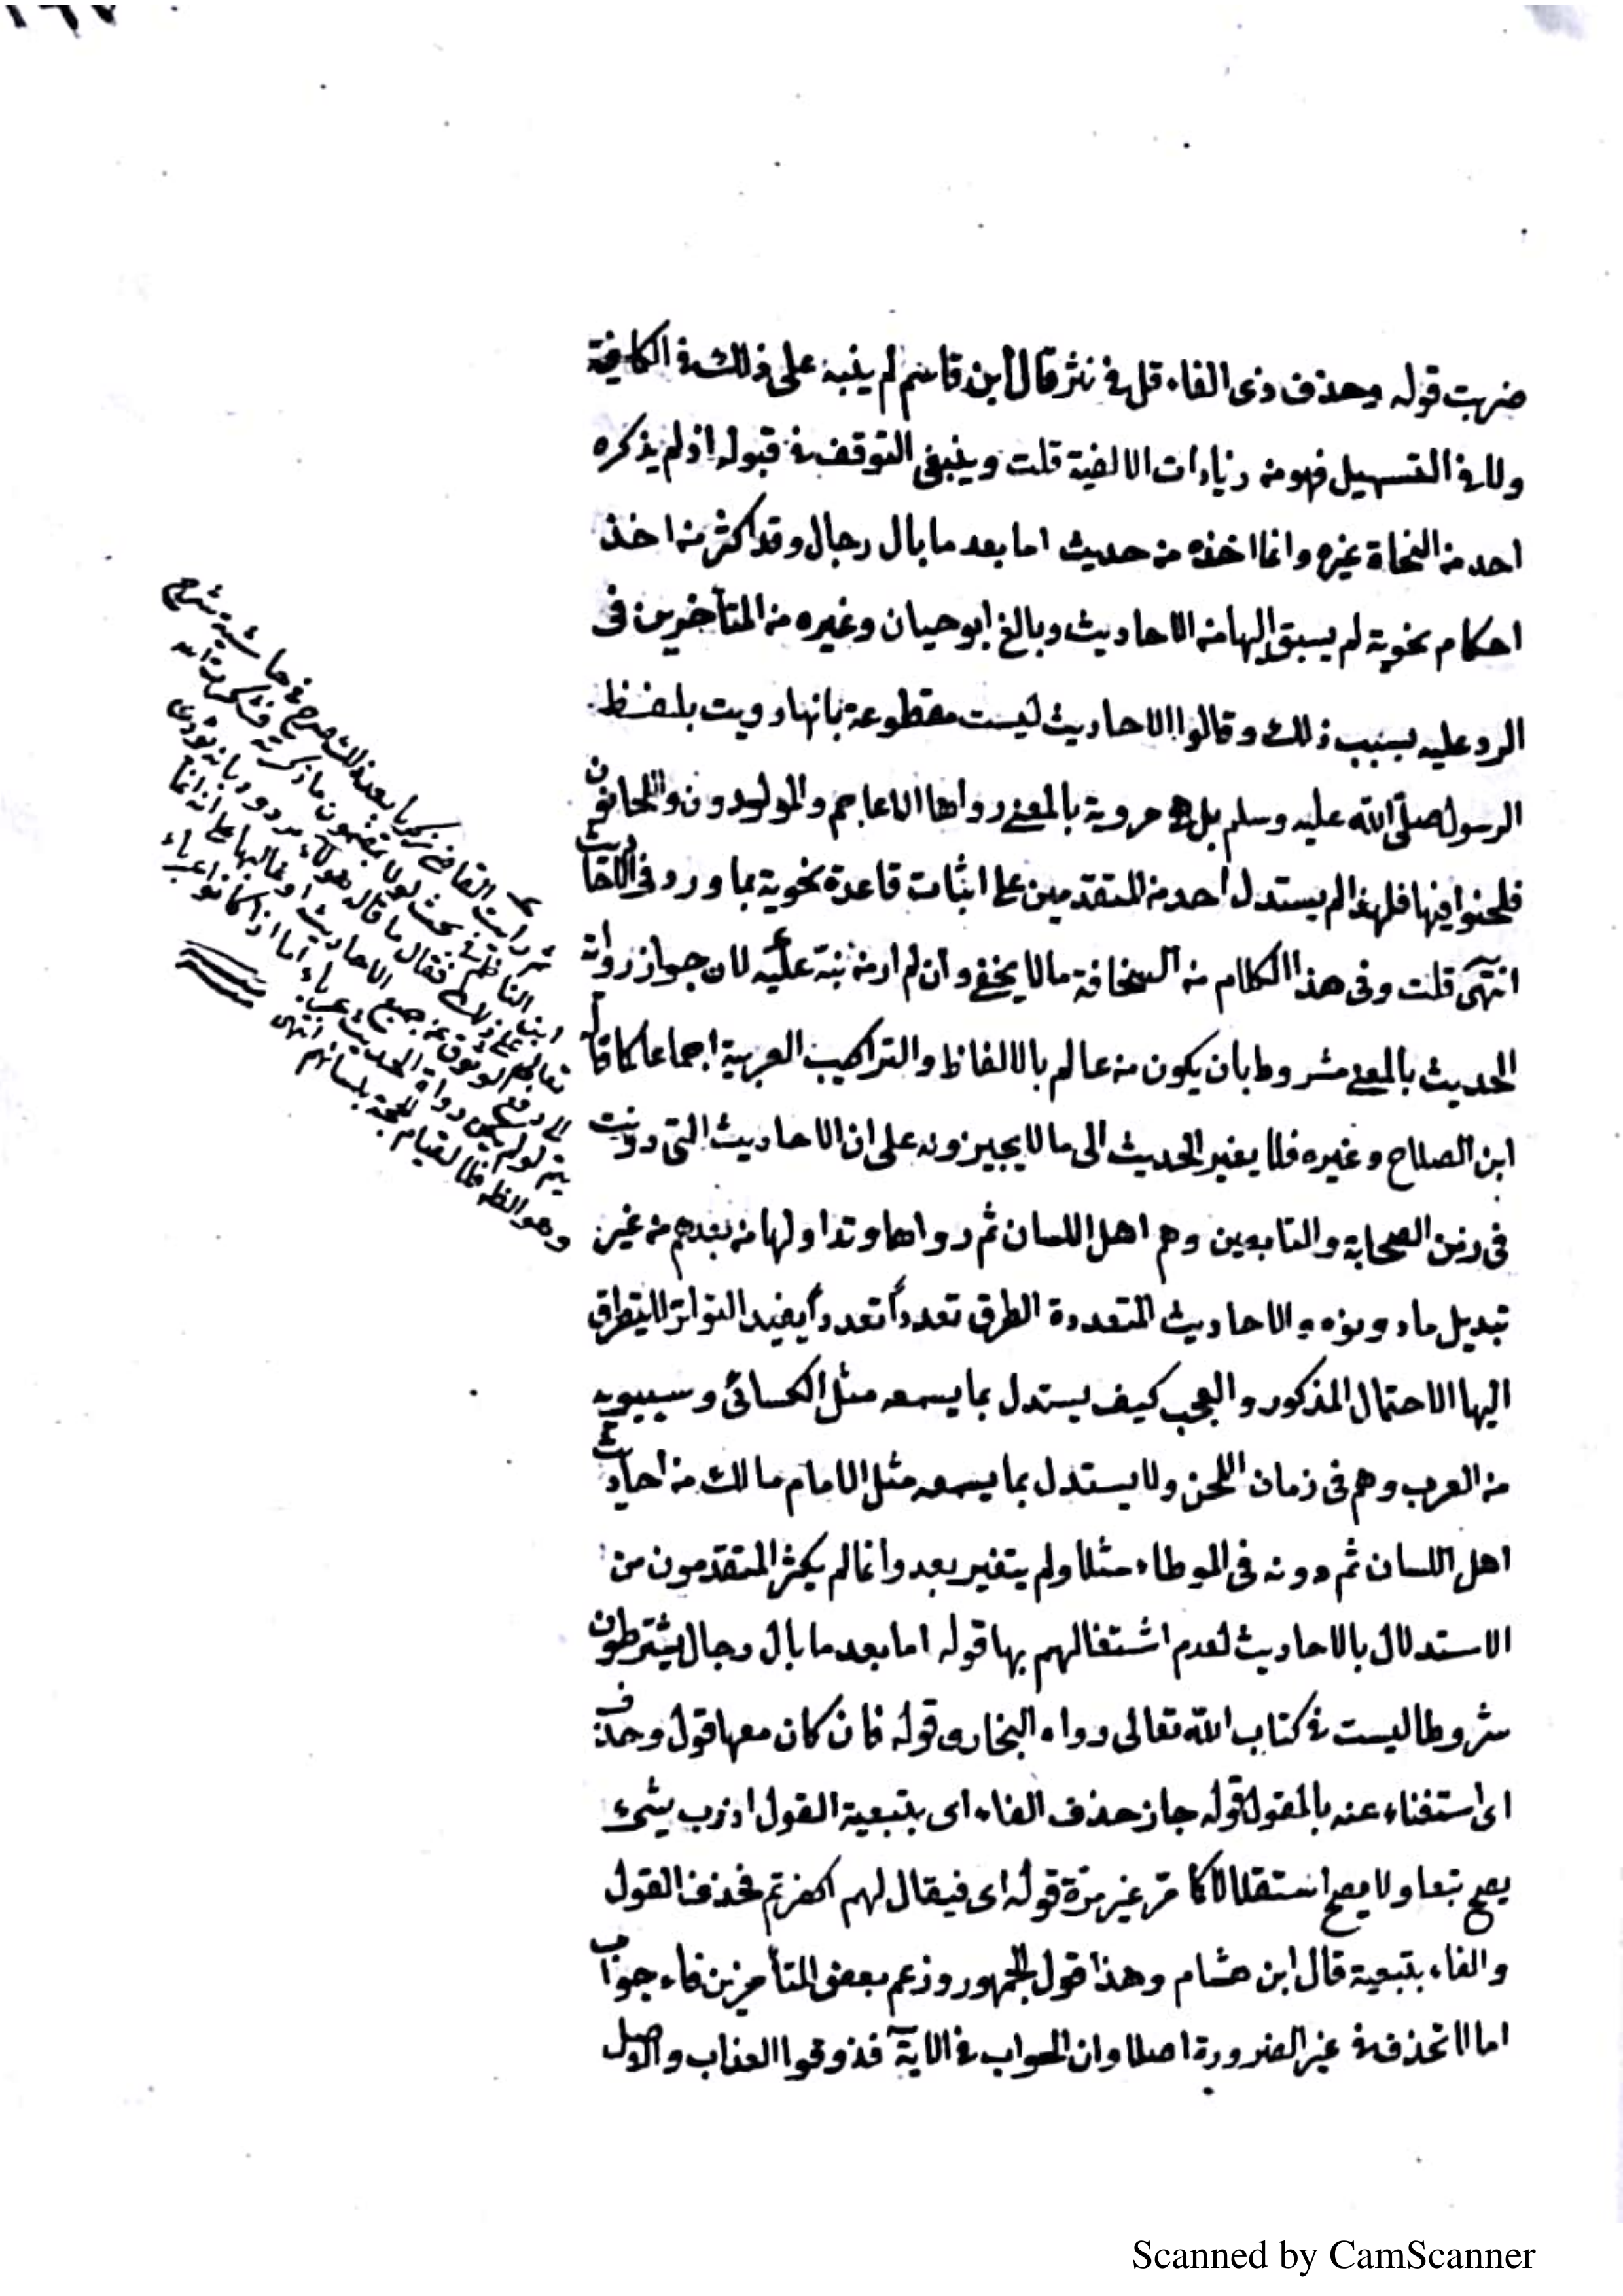 ضربت قوله وحذف ذى الفاء قل فى نثر قال ابن قاسم لم ينبه على ذلك فى الكافية
ولا فى التسهيل فهو من زيادات الالفية قلت وينبغى التوقف فى قبوله اذ لم يذكره
احد من النحاة غيره وانما اخذه من حديث اما بعد ما بال رجال وقد اكثر من اخذ
احكام نحوية لم يسبق اليها من الاحاديث وبالغ ابو حيان وغيره من المتأخرين فى
الرد عليه بسبب ذلك وقالوا الاحاديث ليست مقطوعة بانها رويت بلفظ
الرسول صلى الله عليه وسلم بل هى مروية بالمعنى رواها الاعاجم والمولدون واللحانون
فلحنوا فيها فلهذا لم يستدل احد من المتقدمين على اثبات قاعدة نحوية بما ورد فى الاحاديث
انتهى قلت وفى هذا الكلام من السخافة ما لا يخفى وان لم ار من نبه عليه لان جواز رواية
الحديث بالمعنى مشروط بان يكون من عالم بالالفاظ والتراكيب العربية اجماعا كما قاله
ابن الصلاح وغيره فلا يغير الحديث الى ما لا يجيزونه على ان الاحاديث التى دونت
فى زمن الصحابة والتابعين وهم اهل اللسان ثم رواها وتداولها من بعدهم من غير
تبديل ما دونوه والاحاديث المتعددة الطرق تعددا تعددا يفيد التواتر لا يتطرق
اليها الاحتمال المذكور والعجب كيف يستدل بما يسمعه مثل الكسائى وسيبويه
من العرب وهم فى زمان اللحن ولا يستدل بما يسمعه مثل الامام مالك من احاديث
اهل اللسان ثم دونه فى الموطاء مثلا ولم يتغير بعد وانما لم يكثر المتقدمون من
الاستدلال بالاحاديث لعدم اشتغالهم بها قوله اما بعد ما بال رجال يشترطون
شروطا ليست فى كتاب الله تعالى رواه البخارى قوله فان كان معها قول وحذف
اى استغناء عنه بالمقول قوله جاز حذف الفاء اى بتبعية القول اذ رب شئ
يصح تبعا ولا يصح استقلالا كما مر غير مرة قوله اى فيقال لهم اكفرتم فحذف القول
والفاء بتبعية قال ابن هشام وهذا قول الجمهور وزعم بعض المتأخرين فاء جواب
اما لا تحذف فى غير الضرورة اصلا وان الجواب فى الآية فذوقوا العذاب والاصل
ثم رأيت القاضى زكريا بعد ذلك صرح فى حاشية شرح
ابن الناظم فى بحث لولا بقهون ما ذكرته فشكرت الله
تعالى على ذلك فقال ما قاله هؤلاء مردود بانه يؤدى
الى رفع الوثوق عن جميع الاحاديث او غالبها على انه انما
يتم لو لم يكن رواة الحديث عرباء اما اذا كانوا عرباء
وهو الظ فلا لقيام الحجة بلسانهم انتهى
Scanned by CamScanner